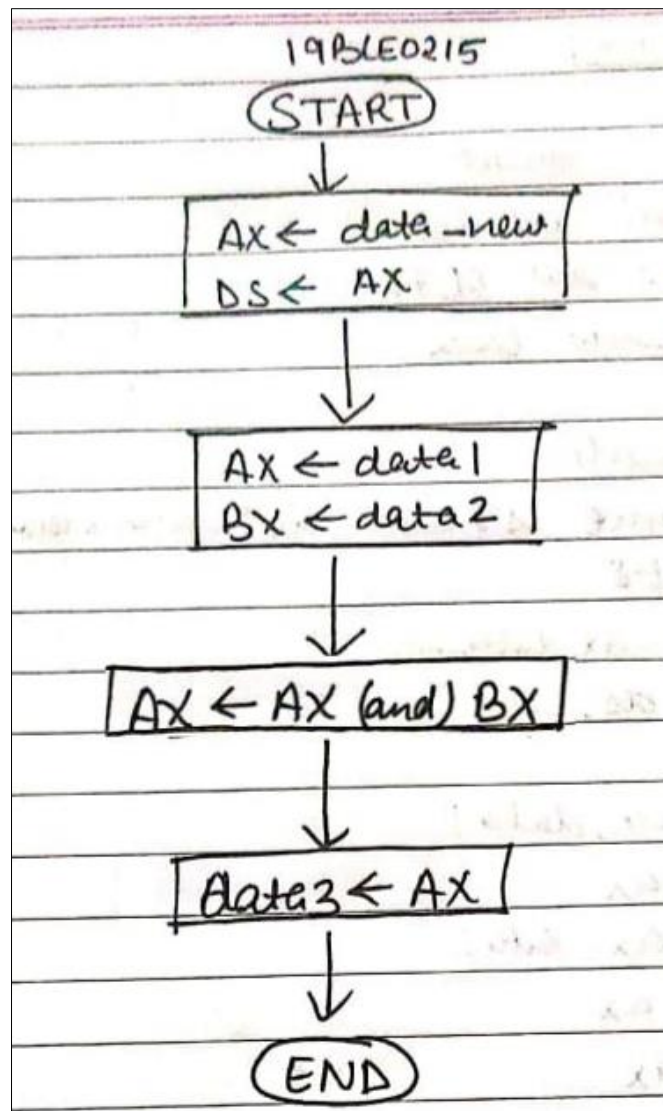 19BLE0215
START
AX ← data_new
DS ← AX
AX ← data1
BX ← data2
AX ← AX (and) BX
data3 ← AX
END